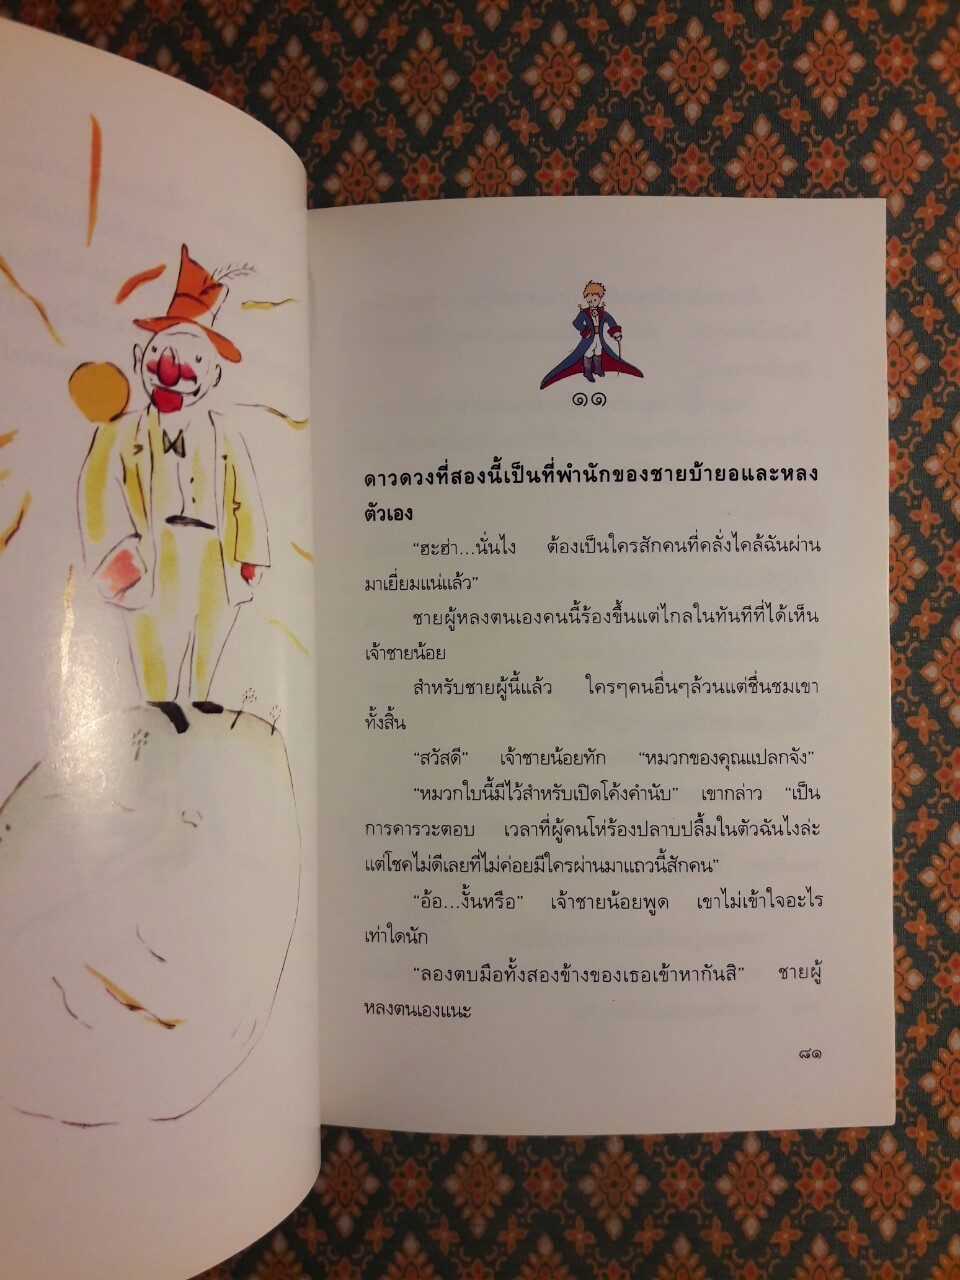 ๑๑
ดาวดวงที่สองนี้เป็นที่พำนักของชายบ้ายอและหลง
ตัวเอง
“ฮะฮ่า...นั่นไง ต้องเป็นใครสักคนที่คลั่งไคล้ฉันผ่าน
มาเยี่ยมแน่แล้ว”
ชายผู้หลงตนเองคนนี้ร้องขึ้นแต่ไกลในทันทีที่ได้เห็น
เจ้าชายน้อย
สำหรับชายผู้นี้แล้ว ใครๆคนอื่นๆล้วนแต่ชื่นชมเขา
ทั้งสิ้น
“สวัสดี” เจ้าชายน้อยทัก “หมวกของคุณแปลกจัง”
“หมวกใบนี้มีไว้สำหรับเปิดโค้งคำนับ” เขากล่าว “เป็น
การคารวะตอบ เวลาที่ผู้คนโห่ร้องปลาบปลื้มในตัวฉันไงล่ะ
แต่โชคไม่ดีเลยที่ไม่ค่อยมีใครผ่านมาแถวนี้สักคน”
“อ้อ...งั้นหรือ” เจ้าชายน้อยพูด เขาไม่เข้าใจอะไร
เท่าใดนัก
“ลองตบมือทั้งสองข้างของเธอเข้าหากันสิ” ชายผู้
หลงตนเองแนะ
๘๑